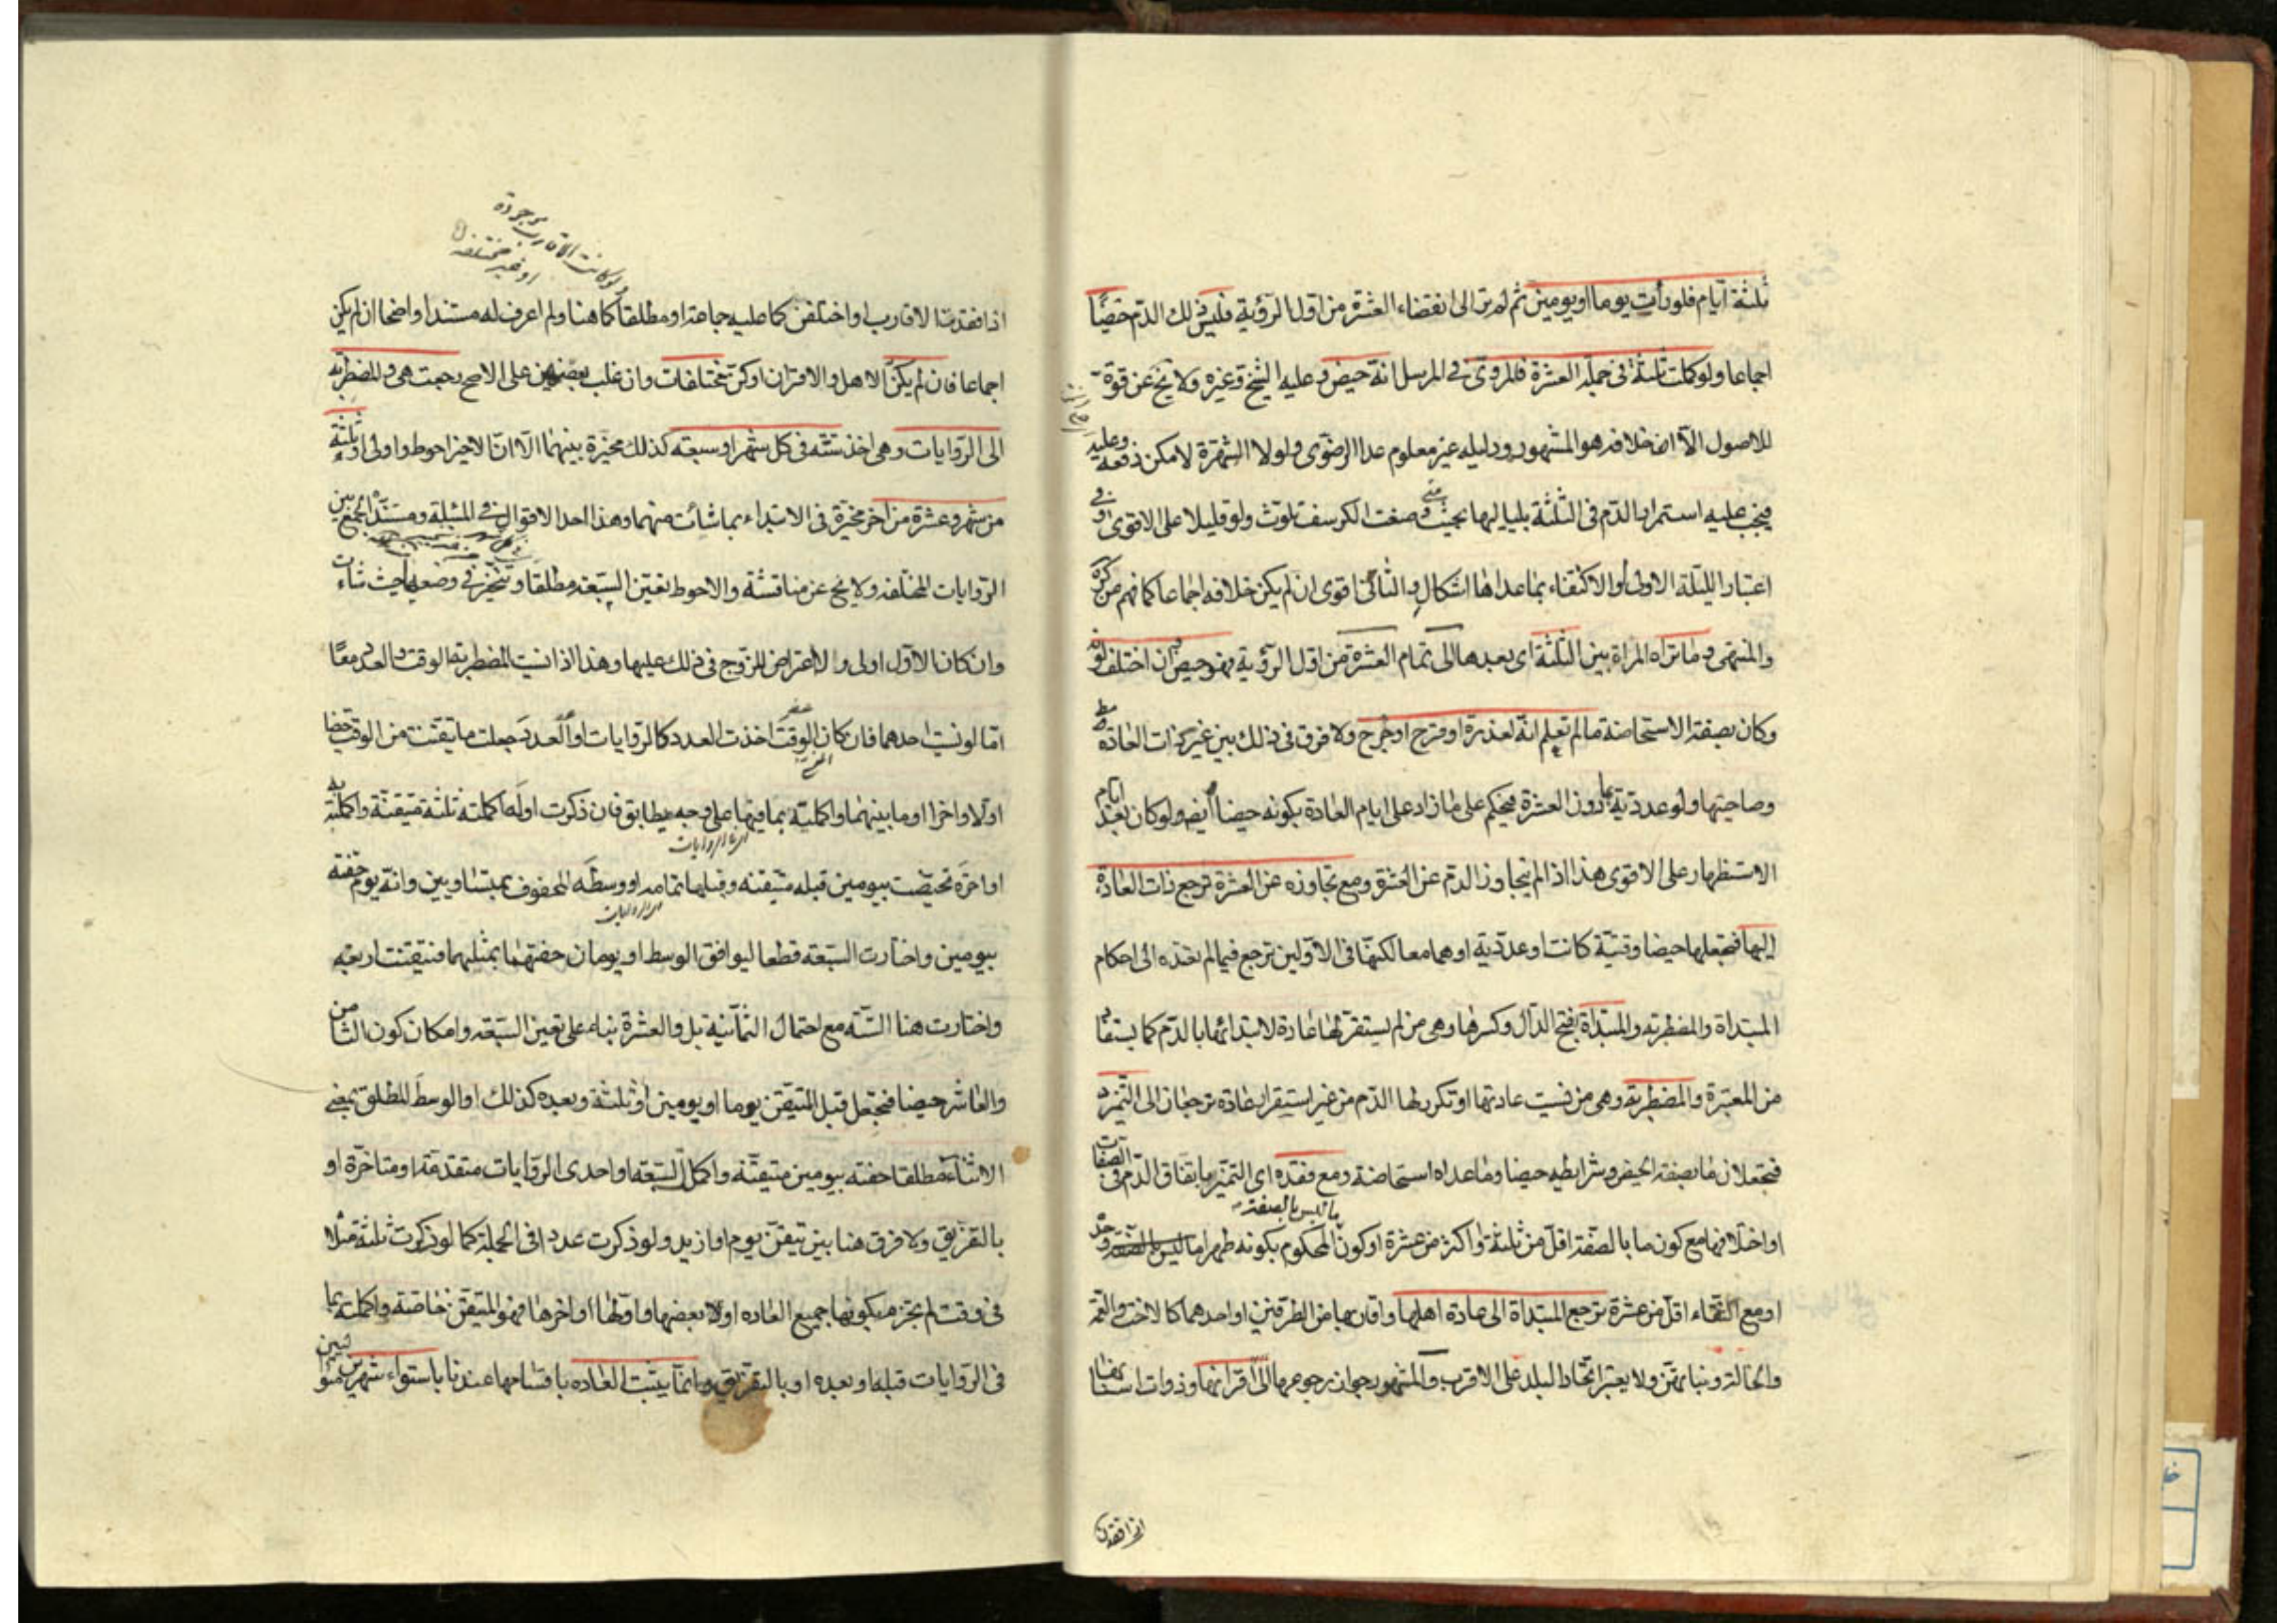 ثلثة ايام فلو رأت يوما او يومين ثم لم تر الى انقضاء العشرة من اول الرؤية فليس ذلك الدم حيضا
اجماعا ولو كملت ثلثة في جملة العشرة فالمروي في المرسل انه حيض وعليه الشيخ وغيره ولا يخ عن قوة
للاصول الا ان خلافه هو المشهور ودليله غير معلوم عدا الرضوى ولولا الشهرة لامكن دفعه وعليه
فيجب عليه استمرار الدم في الثلثة بلياليها بحيث متى وضعت الكرسف تلوث ولو قليلا على الاقوى وفي
اعتبار الليلة الاولى او الاكتفاء بما عداها اشكال والثاني اقوى ان لم يكن خلافه اجماعا كما فهم عن كره
والمنتهى وما تراه المراة بين الثلثة اى بعدها الى تمام العشرة من اول الرؤية فهو حيض وان اختلف لونه
وكان بصفة الاستحاضة ما لم تعلم انه لعذرة او قرح او جرح ولا فرق في ذلك بين غير ذات العادة مط
وصاحبتها ولو عددية بما دون العشرة فيحكم على ما زاد على ايام العادة بكونه حيضا ايضا ولو كان بعد ايام
الاستظهار على الاقوى هذا اذا لم يتجاوز الدم عن العشرة ومع تجاوزه عن العشرة ترجع ذات العادة
اليها فتجعلها حيضا وقتية كانت او عددية او هما معا لكنها في الاولين ترجع فيما لم تعده الى احكام
المبتداة والمضطربة والمبتداة بفتح الدال وكسرها وهى من لم يستقر لها عادة لابتدائها بالدم كما يستفاد
من المعتبرة والمضطربة وهى من نسيت عادتها او تكرر لها الدم من غير استقرار عادة ترجعان الى التميز
فتجعلان ما بصفة الحيض وشرايطه حيضا وما عداه استحاضة ومع فقده اى التميز باتفاق الدم في الصفات
ما ليس بالصفة
او اختلافها مع كون ما بالصفة اقل من ثلثة او اكثر من عشرة او كون المحكوم بكونه طهرا ما ليس بالصفة وحده
او مع النقاء اقل من عشرة ترجع المبتداة الى عادة اهلها واقاربها من الطرفين او احدهما كالاخت والعمة
والخالة وبناتهن ولا يعتبر اتحاد البلد على الاقرب والمشهور جواز رجوعها الى اقرانها وذوات اسنانها
اذا فقدن
ولو كانت الاقارب موجودة
او غير مختلفة
اذا فقدتا الاقارب او اختلفن كما عليه جماعة او مطلقا كما هنا ولم اعرف له مستندا واضحا ان لم يكن
اجماعا فان لم يكن الاهل والاقران او كن مختلفات وان غلب بعضهن على الاصح رجعت هى والمضطربة
الى الروايات وهى اخذ ستة في كل شهر او سبعة كذلك مخيرة بينهما الا ان الاخير احوط واولى او ثلثة
من شهر وعشرة من اخر مخيرة في الابتداء بما شائت منهما وهذا احد الاقوال في المسئلة ومستنده الجمع بين
الروايات المختلفة ولا يخ عن مناقشة والاحوط تعين السبعة مطلقا وتتخير في وضعها حيث شاءت
وان كان الاول اولى ولا اعتراض للزوج في ذلك عليها وهذا اذا نسيت المضطربة الوقت والعدد معا
اما لو نسيت احدهما فان كان الوقت اخذت العدد كالروايات او العدد جعلت ما تيقنت من الوقت حيضا
اولا واخرا او ما بينهما واكملته بما فيها على وجه يطابق فان ذكرت اوله اكملته ثلثة متيقنة واكملته
او اخره تحيضت بيومين قبله متيقنة وقبلها تمامه او وسطه المحفوف بمتساويين وانه يوم حفته
بيومين واختارت السبعة قطعا ليوافق الوسط او يومان حفتهما بمثليهما فتيقنت اربعة
واختارت هنا الستة مع احتمال الثمانية بل والعشرة بناء على تعين السبعة وامكان كون الثامن
والعاشر حيضا فتجعل قبل المتيقن يوما او يومين او ثلثة وبعده كذلك او الوسط المطلق بمعنى
الاثناء مطلقا حفته بيومين متيقنة واكمل السبعة او احدى الروايات متقدمة او متاخرة او
بالتفريق ولا فرق هنا بين تيقن يوم او ازيد ولو ذكرت عددا في الجملة كما لو ذكرت ثلثة مثلا
في وقت لم تجزم بكونها جميع العادة او لا بعضها واولها او اخرها فهو المتيقن خاصة واكملته بما
في الروايات قبله او بعده او بالتفريق وانما يثبت العادة باقسامها عندنا باستواء شهرين